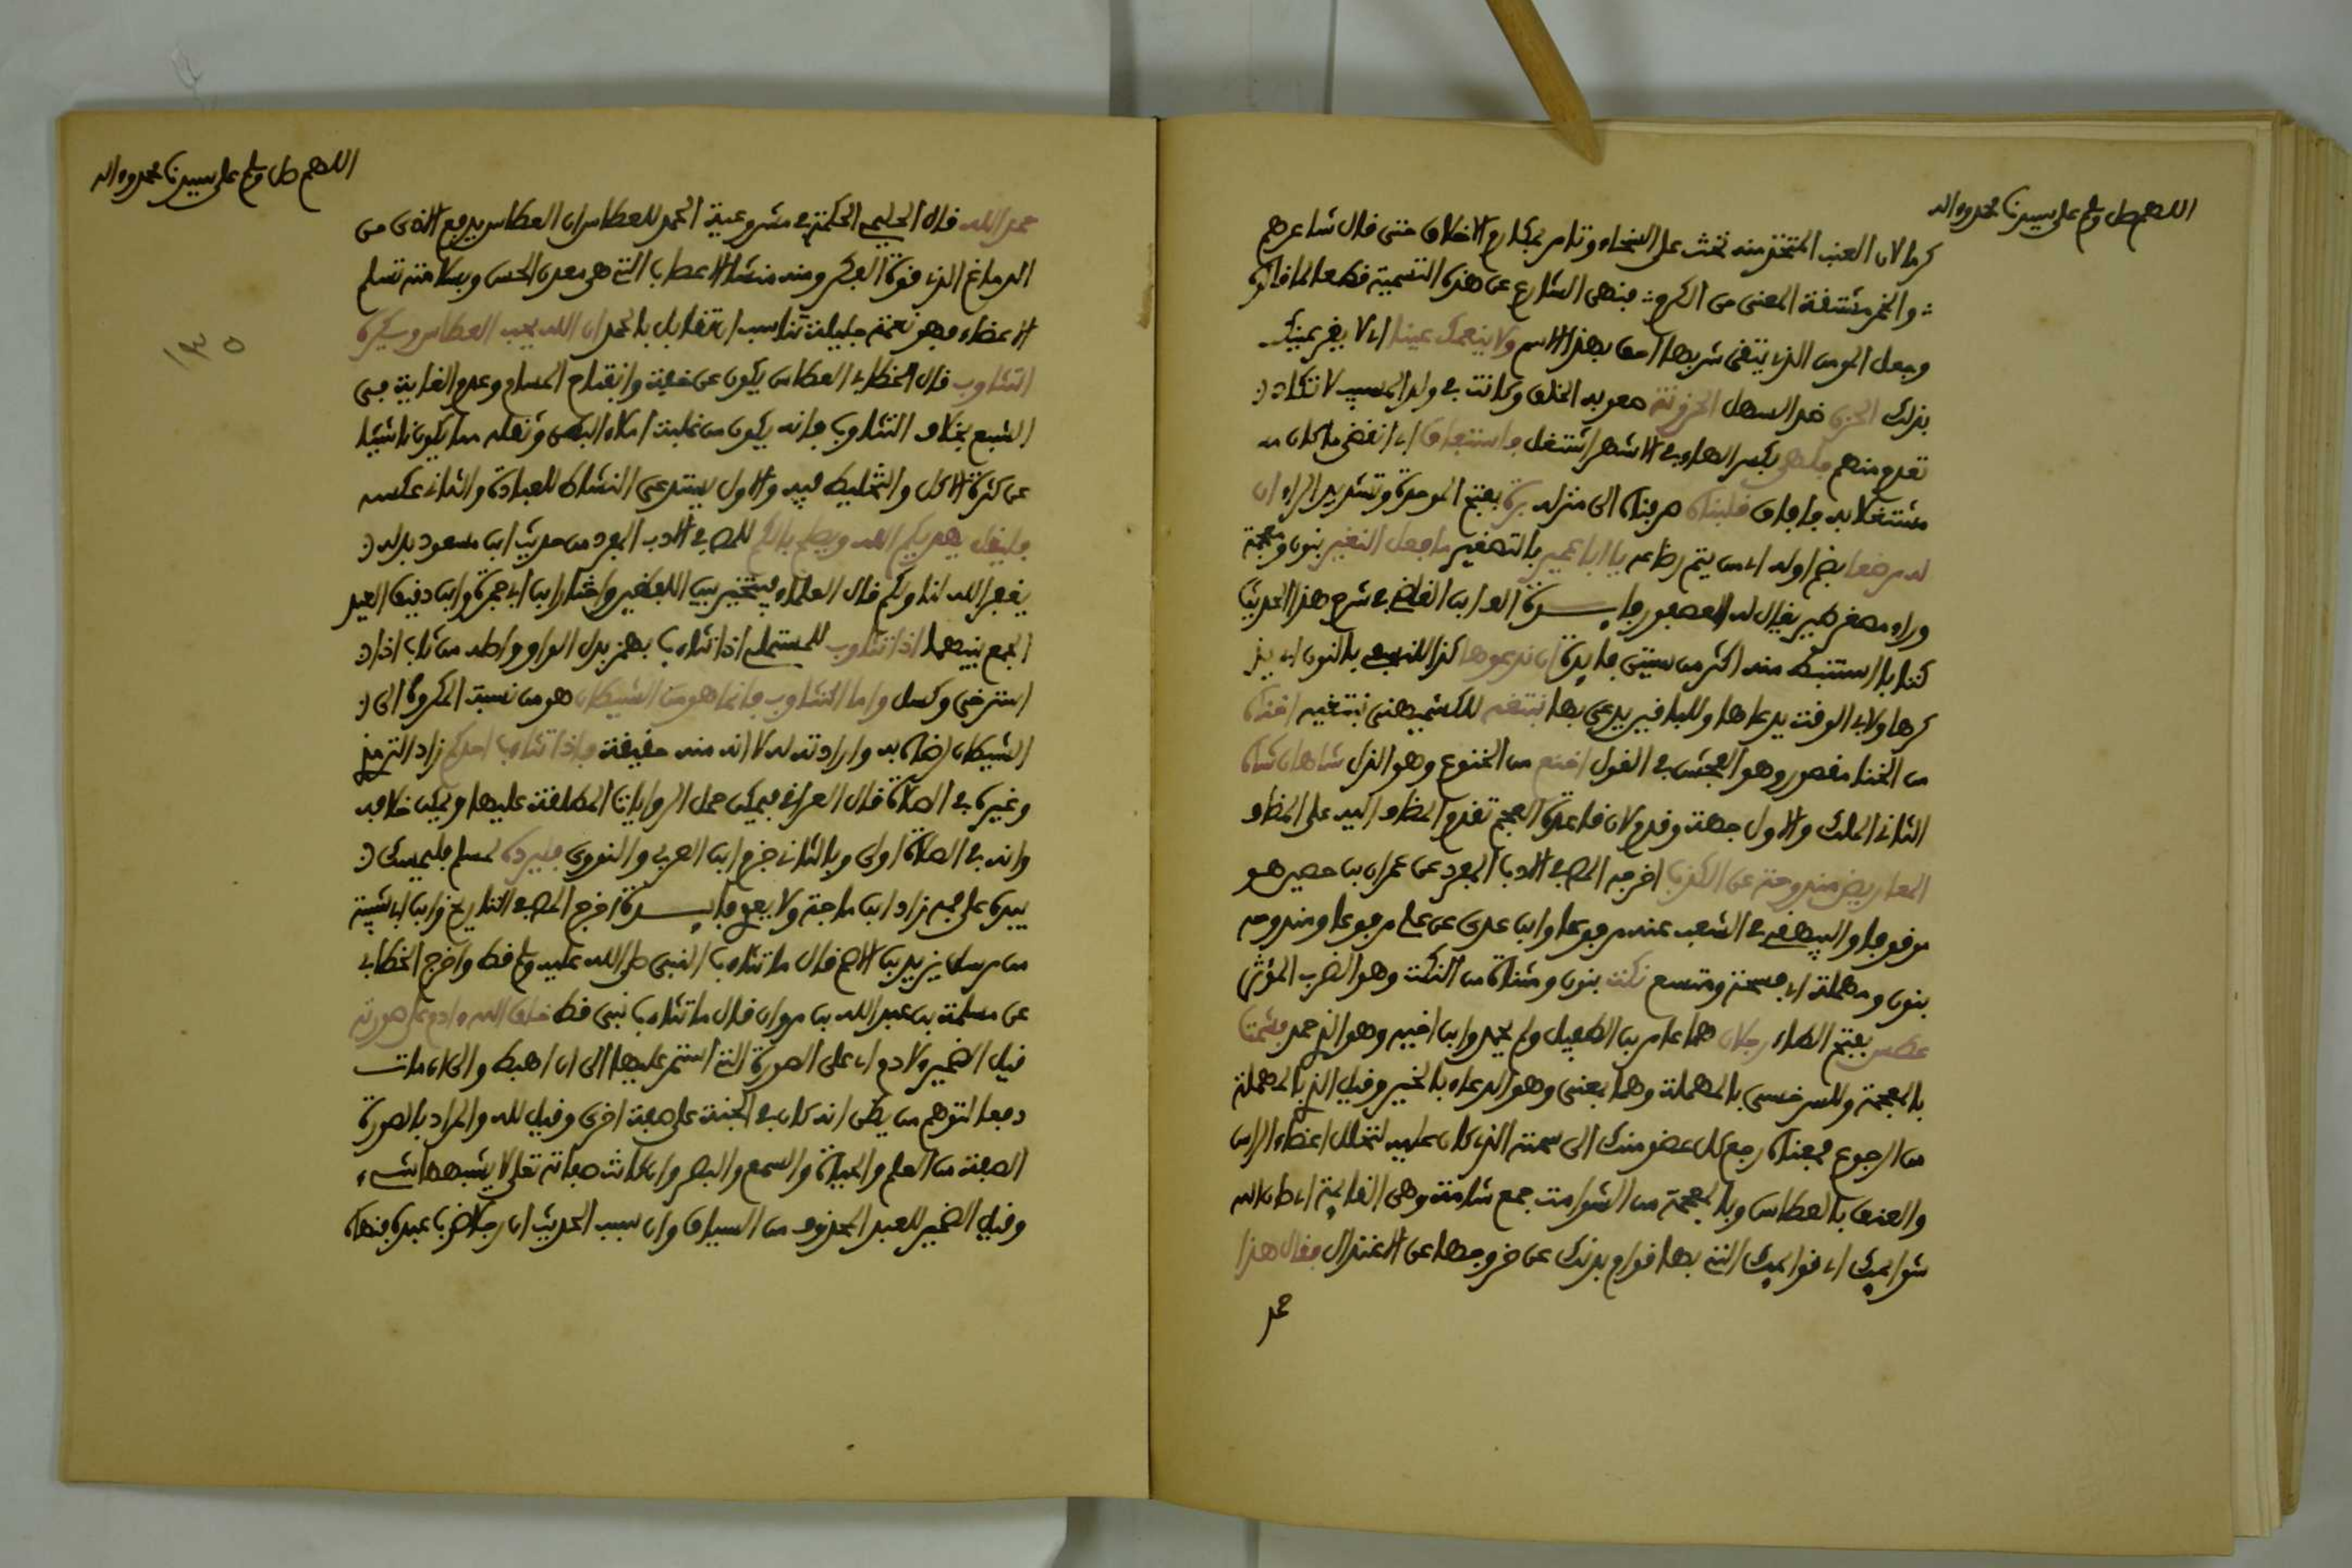 اللهم صل وسلم على سيدنا محمد وءاله
كرما لان العنب المتخذ منه تحث على السخاء وتامر بمكارم الاخلاق حتى قال شاعرهم
والخمر مشتقة المعنى من الكرم فنهى الشارع عن هذه التسمية قطعا لما قالوه
وجعل المومن الذي يتقي شربها احق بهذا الاسم ولا ينعمك عينا اي لا يقر عينك
بذلك الحزن ضد السهل الحزونة صعوبة الخلق وكانت في ولد المسيب لا تكاد
تعدم منهم فلهي بكسر الهاء وفي الاشهر اشتغل فاستفاق اي انقضى ما كان
مشتغلا به فافاق فلبناه صرفناه الى منزله برة بفتح الموحدة وتشديد الراء ان
له مرضعا بضم اوله اي من يتم رضاعه يا ابا عمير بالتصغير ما فعل النغير بنون ومعجمة
وراء مصغر طير يقال له العصفور فايدة الف ابن القاص في شرح هذا الحديث
كتابا استنبط منه اكثر من ستين فايدة ان ندعوها كذا للنسفي بالنون اي يذ
كرها ولابي الوقت يدعاها وللباقين يدعى بها
من الخنا مقصور وهو الفحش في القول اخنع من الخنوع وهو الذل شاهان شاه
الثاني الملك والاول جمعه وقدم لان قاعدة العجم تقديم المضاف اليه على المضاف
المعاريض مندوحة عن الكذب اخرجه المص في الادب المفرد عن عمران بن حصين هو
موقوفا والبيهقي في الشعب عنه مرفوعا وابن عدي عن علي مرفوعا ومندوحة
بنون ومهملة اي فسحة ومتسع نكت بنون ومثناة من النكت وهو الضرب المؤثر
عطس بفتح الطاء رجلان هما عامر بن الطفيل ولم يحمد وابن اخيه وهو الذي حمد فشمت
بالمعجمة وللسرخسي بالمهملة وهما بمعنى وهو الدعاء بالخير وقيل الذي بالمهملة
من الرجوع فمعناه رجع كل عضو منك الى سمته الذي كان عليه لتحلل اعضاء الراس
والعنق بالعطاس وبالمعجمة من الشوامت جمع شامتة وهي القايمة اي صان الله
شوامتك اي قوايمك التي بها قوام بدنك عن خروجها عن الاعتدال فقال هذا
حمد
اللهم صل وسلم على سيدنا محمد وءاله
حمد الله قال الحليمي الحكمة في مشروعية الحمد للعطاس ان العطاس يدفع الاذى من
الدماغ الذي فيه قوة الفكر ومنه منشا الاعصاب التي هي معدن الحس وبسلامته تسلم
الاعضاء فهو نعمة جليلة تناسب ان تقابل بالحمد ان الله يحب العطاس ويكره
التثاوب قال الخطابي العطاس يكون عن خفة وانفتاح المسام وعدم الغاية في
الشبع بخلاف التثاوب فانه يكون من غلبة امتلاء البدن وثقله مما يكون ناشيا
عن كثرة الاكل والتخليط فيه والاول يستدعي النشاط للعبادة والثاني عكسه
فليقل يهديكم الله ويصلح بالكم للمص في الادب المفرد من حديث ابن مسعود بدله
يغفر الله لنا ولكم قال العلماء فيتخير بين اللفظين واختار ابن ابي جمرة وابن دقيق العيد
الجمع بينهما اذا تثاوب للمستملي اذا تثاءب بهمز بدل الواو واصله من تاب اذا
استرخى وكسل واما التثاوب فانما هو من الشيطان هو من نسبة المكروه الى
الشيطان لرضاه به وارادته له لا انه منه حقيقة فاذا تثاءب احدكم زاد الترمذي
وغيره في الصلاة قال العراقي فيمكن حمل الروايات المطلقة عليها ويمكن خلافه
وانه في الصلاة اولى وبالثاني جزم ابن العربي والنووي فليرده لمسلم فليمسك
بيده على فيه زاد ابن ماجة ولا يعوي فايدة اخرج المص في التاريخ وابن ابي شيبة
من مرسل يزيد بن الاصم قال ما تثاءب النبي صلى الله عليه وسلم قط واخرج الخطابي
عن مسلمة بن عبد الله بن مروان قال ما تثاءب نبي قط خلق الله ءادم على صورته
قيل الضمير لادم اي على الصورة التي استمر عليها الى ان اهبط والى ان مات
دفعا لتوهم من يظن انه كان في الجنة على صفة اخرى وقيل لله والمراد بالصورة
الصفة من العلم والحياة والسمع والبصر وان كانت صفاته تعلى لا يشبهها شيء
وقيل الضمير للعبد المحذوف من السياق وان سبب الحديث ان رجلا ضرب عبده فنهاه